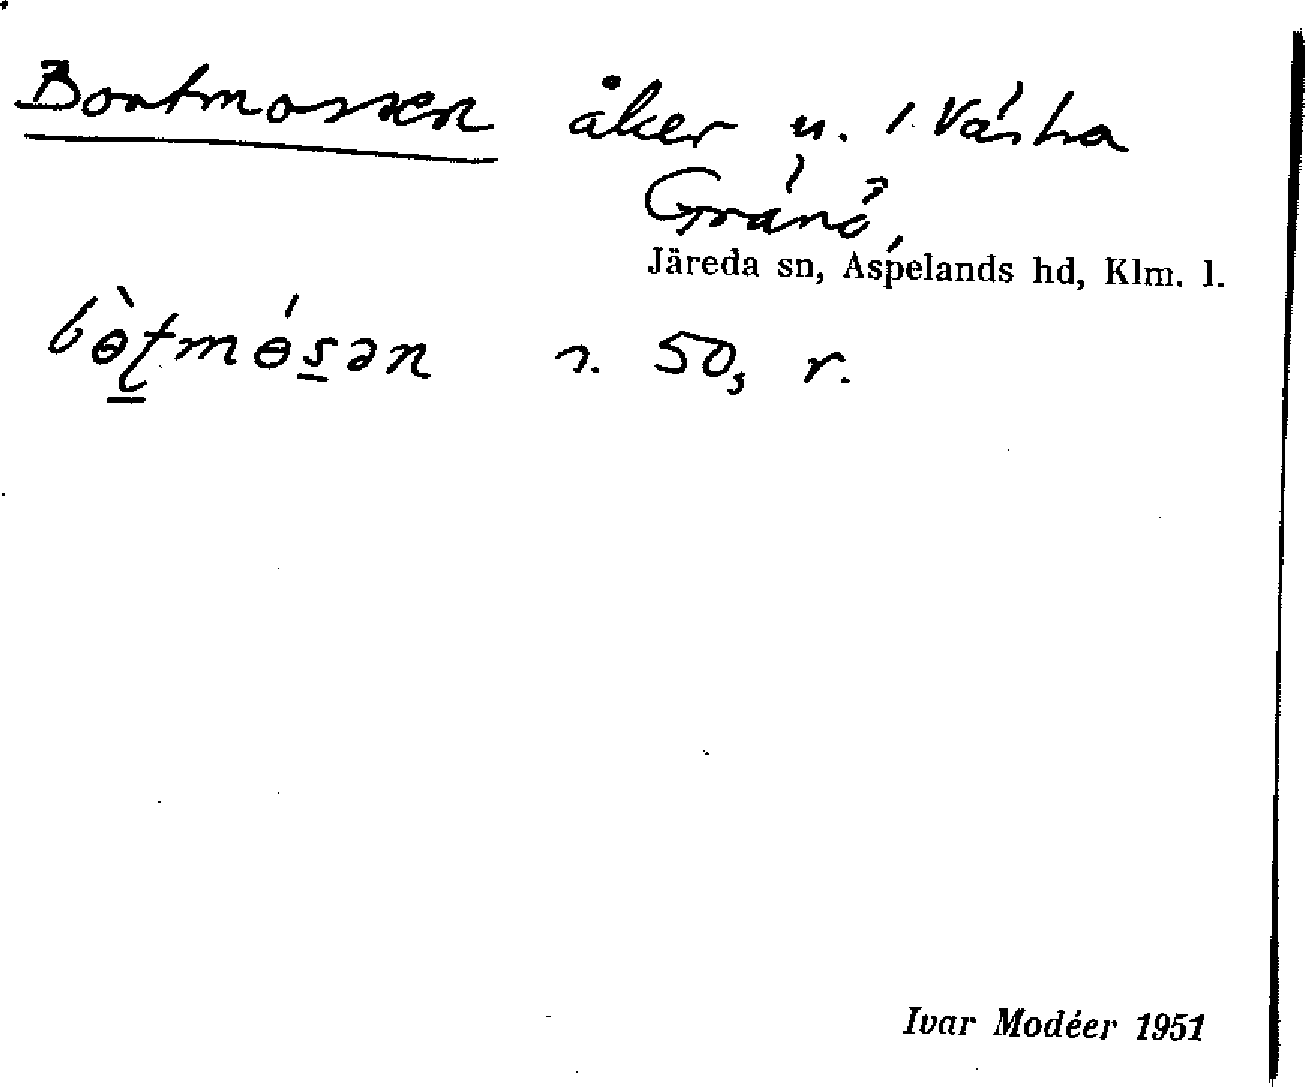 Bortmossen åker u. 1 Västra
Gränö,
Järeda sn, Aspelands hd, Klm. l.
bòʈmósən s. 50, r.
Ivar Modéer 1951